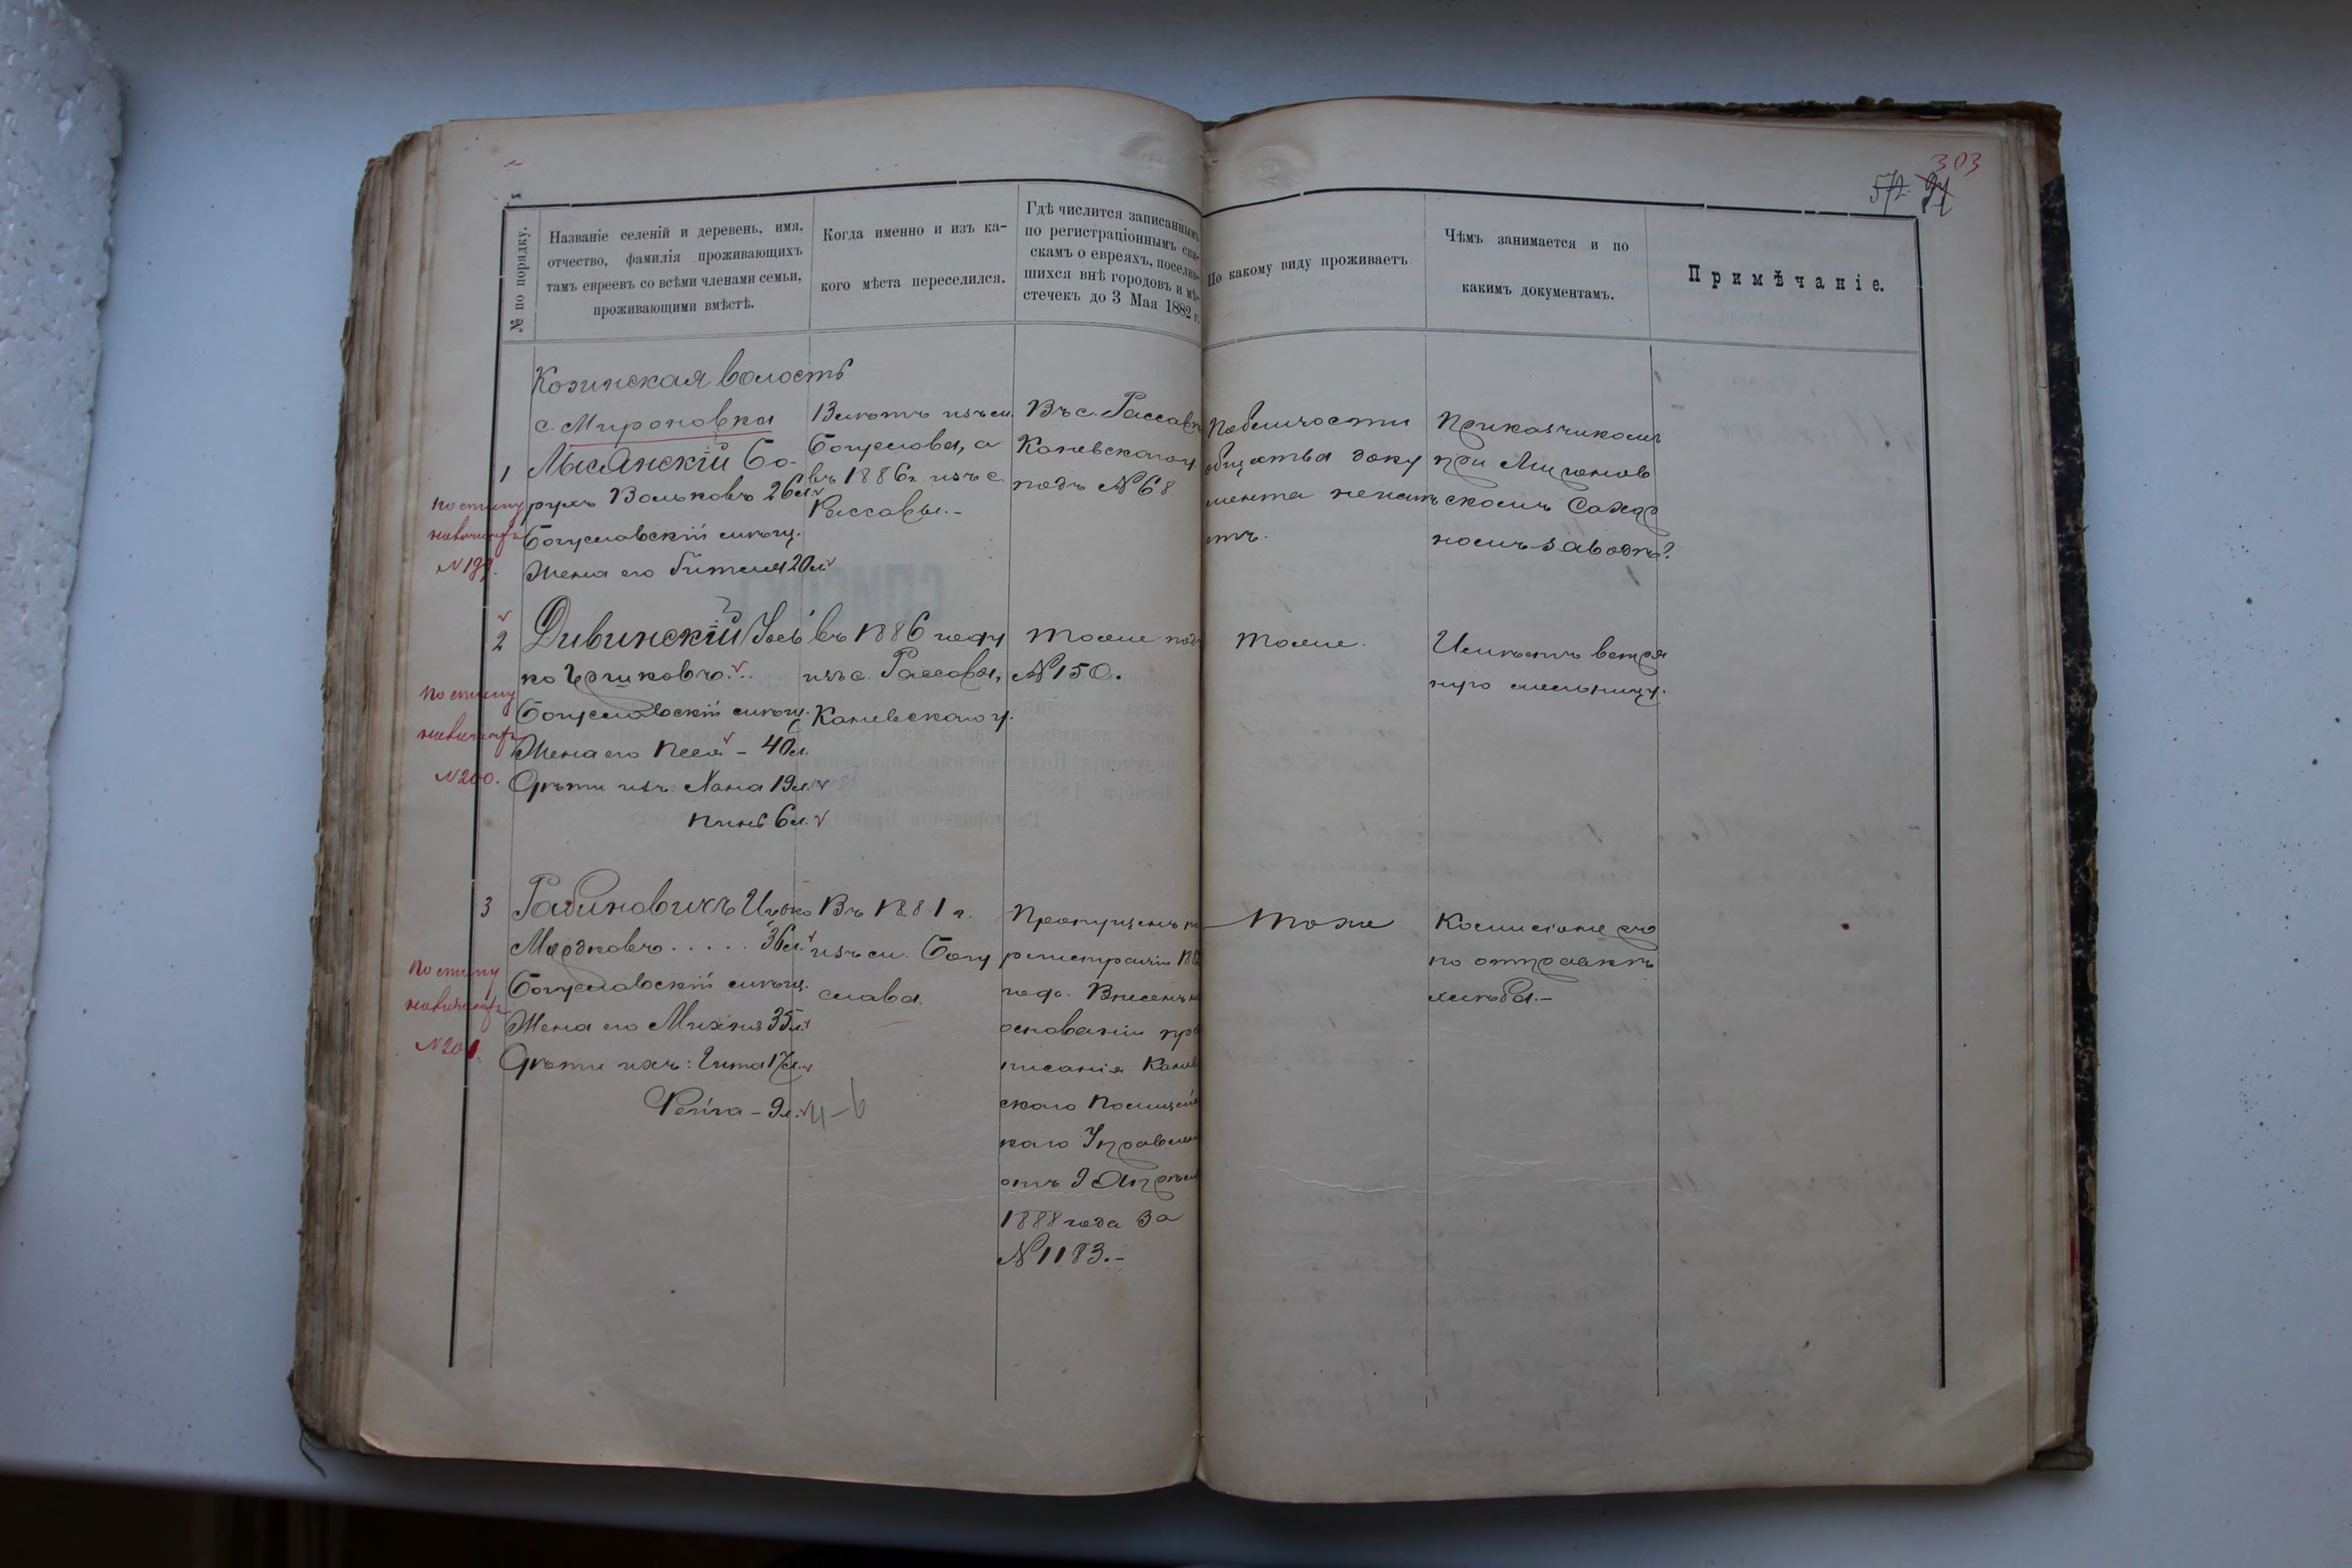 303
572. 91
№ по порядку.
Названіе селеній и деревень, имя,
отчество, фамилія проживающихъ
тамъ евреевъ со всѣми членами семьи,
проживающими вмѣстѣ.
Когда именно и изъ ка-
кого мѣста переселился.
Гдѣ числится записаннымъ
по регистраціоннымъ спи-
скамъ о евреяхъ, поселив-
шихся внѣ городовъ и мѣ-
стечекъ до 3 Мая 1882 г.
По какому виду проживаетъ.
Чѣмъ занимается и по
какимъ документамъ.
Примѣчаніе.
Козинская волость
с. Мироновка
1
Лысянскій Бо-
рухъ Вольковъ 26 л.
Богуславскій мѣщ.
Жена его Гитля 20 л.
N 199.
Богуслова, а
въ 1886 г. изъ с.
Рассавы.-
Въ с. Рассавѣ
Каневскаго у.
подъ №68.
общества доку
мента неимѣ
етъ.
Приказчикомъ
при Миронов
скомъ Сахар
номъ заводѣ?
2
Дивинскій Іось
ко Ершковъ
Богуславскій мѣщ.
Жена его Песя - 40 л.
Дѣти ихъ: Хана 19 л.
Пинь 6 л.
N 200.
въ 1886 году
изъ с. Рассавы,
Каневскаго у.
тоже подъ
№150.
тоже.
Имѣетъ ветря
ную мельницу.
3
Рабиновичъ Ицко
Мордковъ..... 36 л.
Богуславскій мѣщ.
Жена его Михля 35 л.
Дѣти ихъ: Гита 17 л.
Рейза - 9 л.
N 201.
Въ 1881 г.
изъ м. Богу
слава.
Пропущенъ по
регистраціи 188
года. Внесенъ на
основаніи пред
писанія Канев
скаго Полицей
каго Управлен
отъ 9 Апрѣля
1888 года за
№1183.-
тоже
Комисіонеръ
по отправкѣ
хлѣба.-